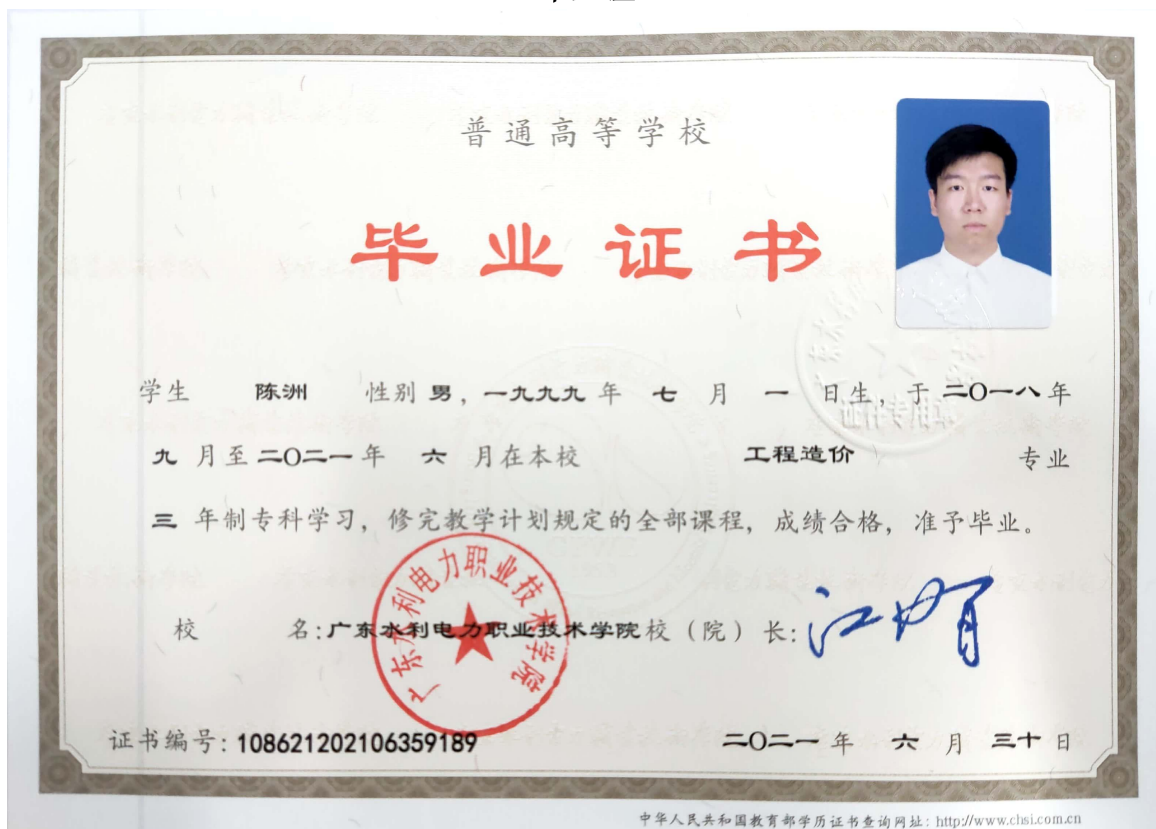 普通高等学校
毕业证书
学生 陈洲 性别 男，一九九九年 七 月 一 日生，于二〇一八年
九 月至二〇二一年 六 月在本校 工程造价 专业
三 年制专科学习，修完教学计划规定的全部课程，成绩合格，准予毕业。
广东水利电力职业技术学院
校 名：广东水利电力职业技术学院校（院）长：
证书编号：108621202106359189 二〇二一年 六 月 三十 日
中华人民共和国教育部学历证书查询网址：http://www.chsi.com.cn